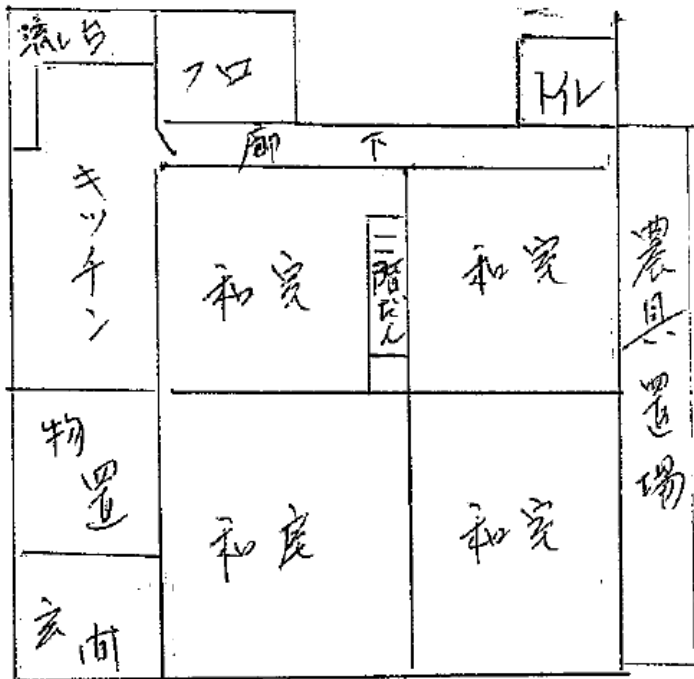 流し台
フロ
トイレ
廊下
キッチン
和室
二階だん
和室
農具置場
物置
和室
和室
玄関